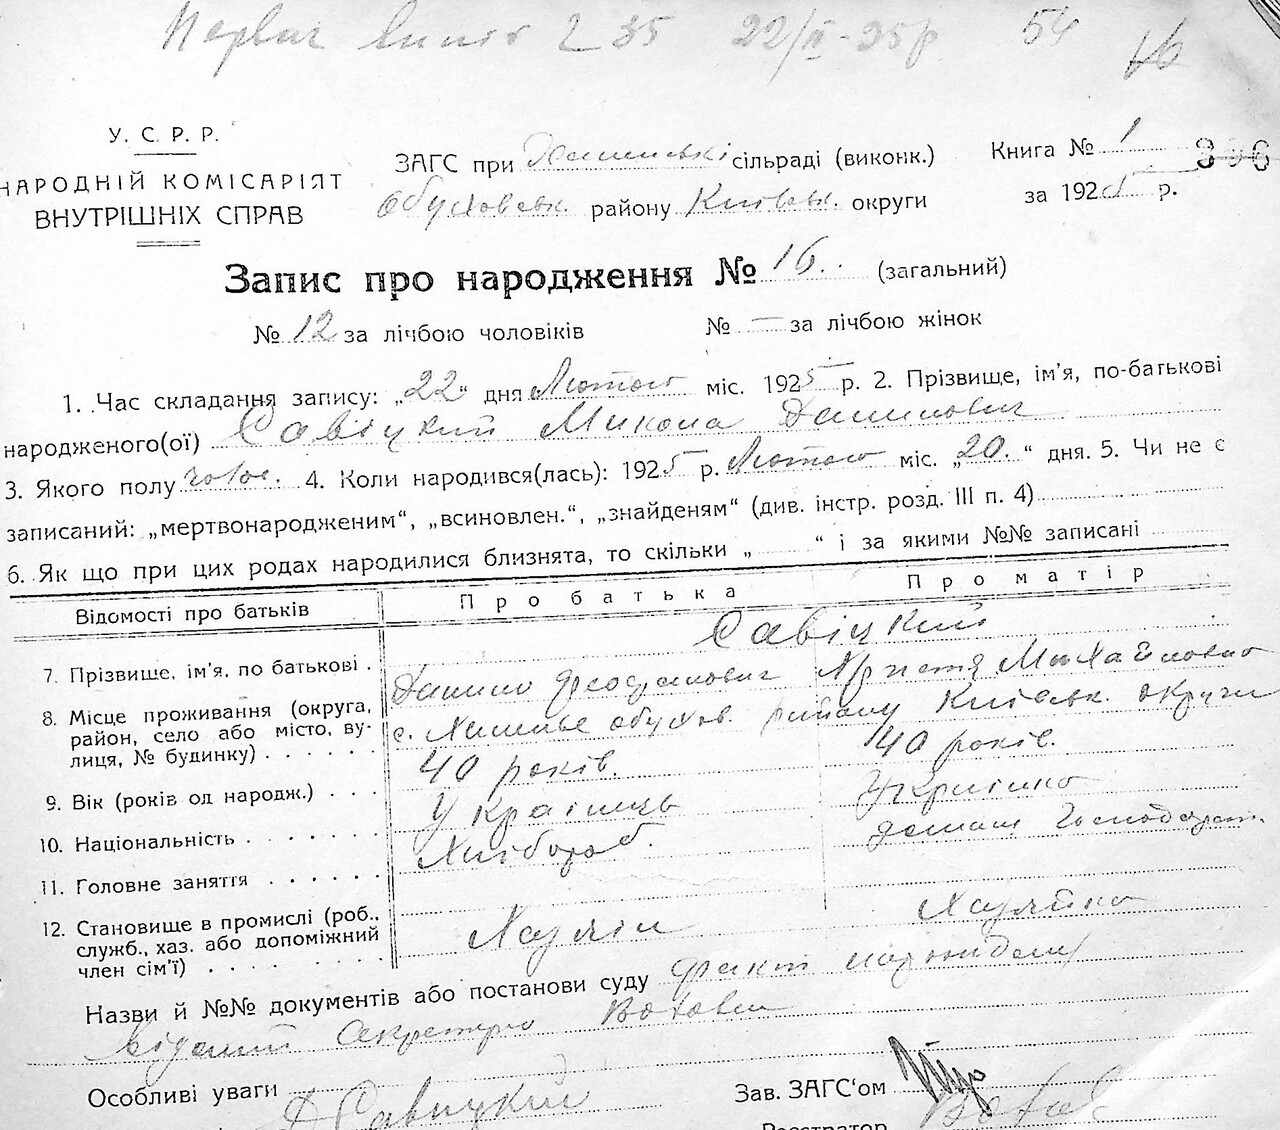 2 35 22/II-25р 54 16
У. С. Р. Р.
НАРОДНІЙ КОМІСАРІЯТ
ВНУТРІШНІХ СПРАВ
ЗАГС при сільраді (виконк.)
Обуховськ. району Київськ. округи
Книга № 1
за 1925 р.
Запис про народження № 16. (загальний)
№ 12 за лічбою чоловіків № — за лічбою жінок
1. Час складання запису: „22“ дня Лютого міс. 1925 р. 2. Прізвище, ім’я, по-батькові
народженого(ої) Савіцкий Микола Данилович
3. Якого полу чолов. 4. Коли народився(лась): 1925 р. Лютого міс. „20.“ дня. 5. Чи не є
записаний: „мертвонародженим“, „всиновлен.“, „знайденям“ (див. інстр. розд. III п. 4)
6. Як що при цих родах народилися близнята, то скільки „ “ і за якими №№ записані
Відомості про батьків Про батька Про матір
Савіцкий
7. Прізвище, ім’я, по батькові . Данило Михайловна
8. Місце проживання (округа, с. обухов. району Київськ. округи
район, село або місто, ву-
лиця, № будинку) . . . . .
9. Вік (років од народж.) . . . 40 років. 40 років.
10. Національність . . . . . . Українець Українка
11. Головне заняття . . . . . . Хлібороб. домаш. Господарст.
12. Становище в промислі (роб., Хазяїн Хазяйка
служб., хаз. або допоміжний
член сім’ї) . . . . . . . .
Назви й №№ документів або постанови суду факт
відомий Секретарю
Особливі уваги Д Савицкий
Зав. ЗАГС‘ом
Реєстратор